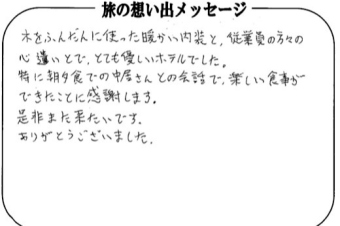 旅の想い出メッセージ
木をふんだんに使った暖かい内装と、従業員の方々の
心遣いとで、とても優しいホテルでした。
特に朝夕食での中居さんとの会話で、楽しい食事が
できたことに感謝します。
是非また来たいです。
ありがとうございました。